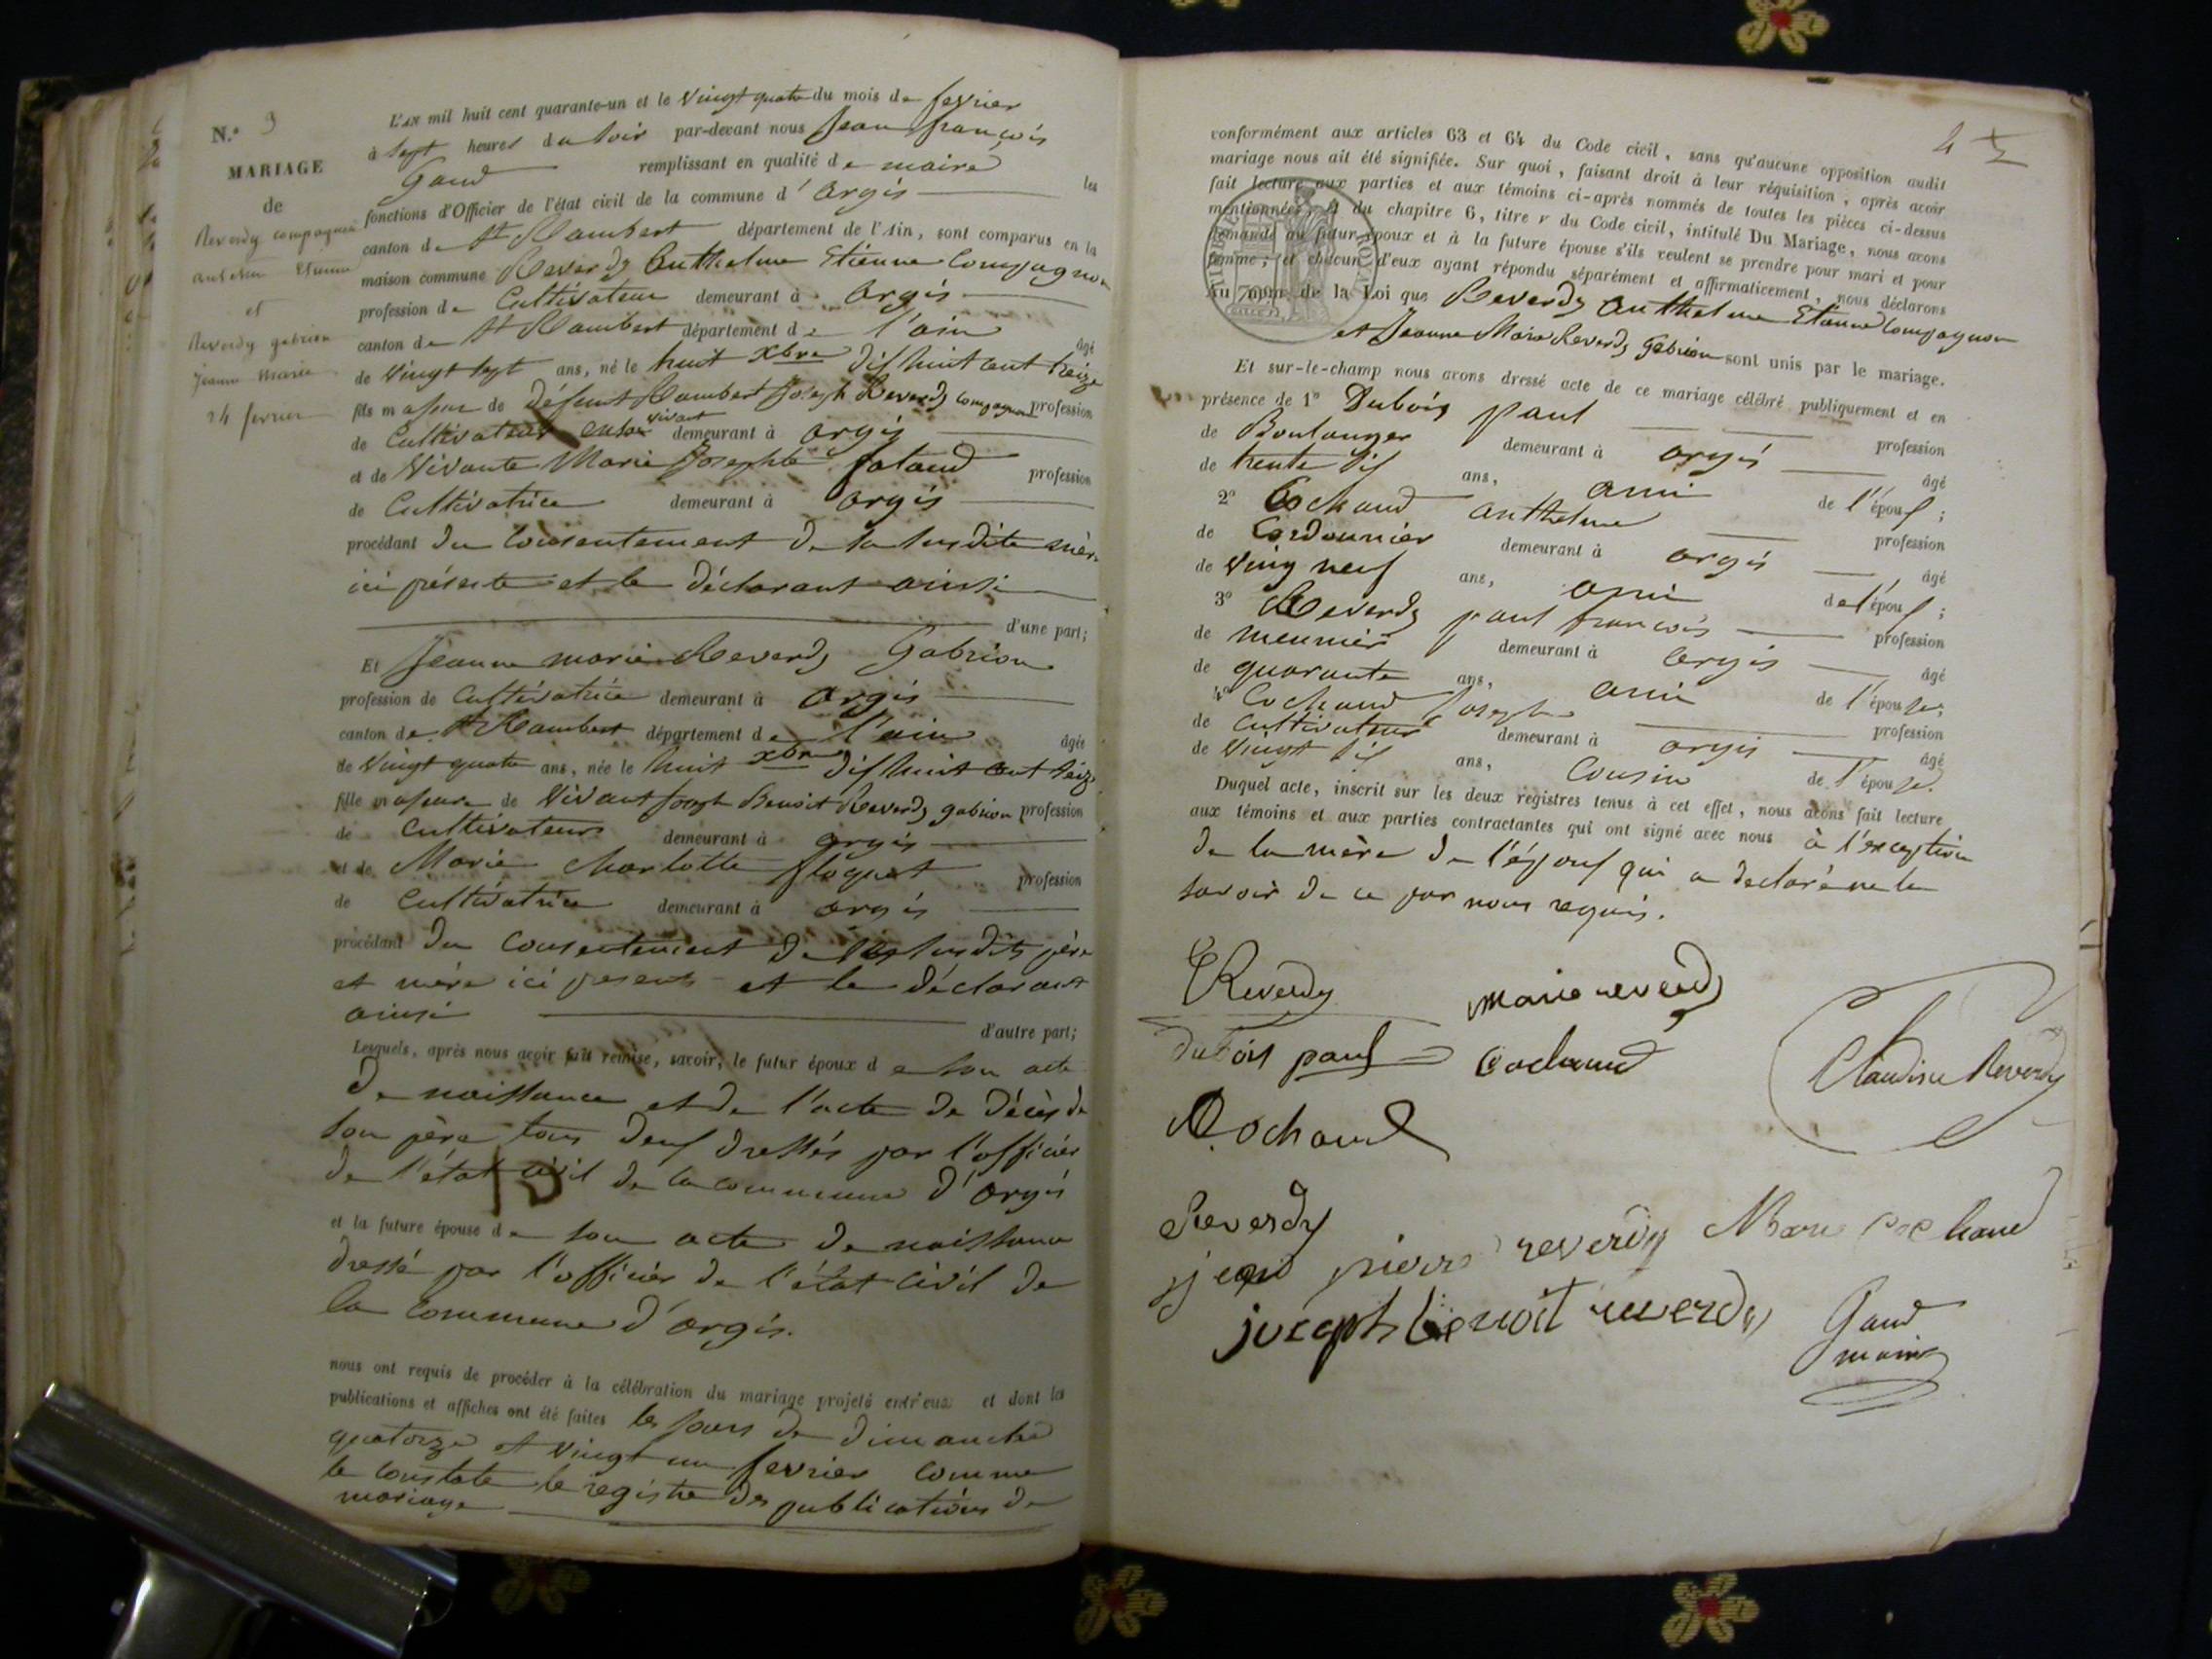 N.° 3
MARIAGE
de
Reverdy compagnon
anthelme Etienne
et
Reverdy gabrion
jeanne marie
24 fevrier
L'AN mil huit cent quarante-un et le vingt quatre du mois de fevrier
à sept heures du soir par-devant nous Jean françois
Gaud remplissant en qualité de maire les
fonctions d'Officier de l'état civil de la commune d'Argis
canton de St Rambert département de l'Ain, sont comparus en la
maison commune Reverdy Anthelme Etienne Compagnon
profession de Cultivateur demeurant à Argis
canton de St Rambert département de l'ain âgé
de vingt sept ans, né le huit Xbre dix huit cent treize
fils majeur de défunt Rambert Joseph Reverdy compagnon profession
de Cultivateur vivant demeurant à argis
et de vivante Marie Josephte fataud profession
de Cultivatrice demeurant à argis
procédant du consentement de sa susdite mère
ici présente et le déclarant ainsi
d'une part;
Et Jeanne marie Reverdy Gabrion
profession de Cultivatrice demeurant à argis
canton de St Rambert département de l'ain âgée
de vingt quatre ans, née le huit Xbre dix huit cent seize
fille majeure de vivant Joseph Benoit Reverdy gabrion profession
de Cultivateur demeurant à argis
et de Marie Charlotte floquet profession
de Cultivatrice demeurant à argis
procédant du consentement de ses susdits père
et mère ici presents et le déclarant
ainsi
d'autre part;
Lesquels, après nous avoir fait remise, savoir, le futur époux de son acte
de naissance et de l'acte de décès de
son père tous deux dressés par l'officier
de l'état civil de la commune d'argis
et la future épouse de son acte de naissance
dressé par l'officier de l'état civil de
la commune d'argis.
nous ont requis de procéder à la célébration du mariage projeté entr'eux et dont les
publications et affiches ont été faites les jours de dimanche
quatorze et vingt un fevrier comme
le constate le registre des publications de
mariage
conformément aux articles 63 et 64 du Code civil, sans qu'aucune opposition audit
mariage nous ait été signifiée. Sur quoi, faisant droit à leur réquisition, après avoir
fait lecture aux parties et aux témoins ci-après nommés de toutes les pièces ci-dessus
mentionnées, et du chapitre 6, titre v du Code civil, intitulé Du Mariage, nous avons
demandé au futur époux et à la future épouse s'ils veulent se prendre pour mari et pour
femme; et chacun d'eux ayant répondu séparément et affirmativement, nous déclarons
au nom de la Loi que Reverdy Anthelme Etienne Compagnon
et Jeanne Marie Reverdy Gabrion sont unis par le mariage.
Et sur-le-champ nous avons dressé acte de ce mariage célébré publiquement et en
présence de 1° Dubois paul profession
de Boulanger demeurant à argis âgé
de trente six ans, ami de l'époux;
2° Cochaud Anthelme profession
de Cordonnier demeurant à argis âgé
de ving neuf ans, ami de l'époux;
3° Reverdy paul françois profession
de meunier demeurant à argis âgé
de quarante ans, ami de l'épouse;
4° Cochaud Joseph profession
de Cultivateur demeurant à argis âgé
de vingt six ans, Cousin de l'épouse.
Duquel acte, inscrit sur les deux registres tenus à cet effet, nous avons fait lecture
aux témoins et aux parties contractantes qui ont signé avec nous à l'exception
de la mère de l'époux qui a declaré ne le
savoir de ce par nous requis.
Reverdy
marie reverdy
Claudine Reverdy
dubois paul
Cochaud
Cochaud
Reverdy
jean pierre reverdy
Marie cochaud
joseph benoit reverdy
Gaud
maire